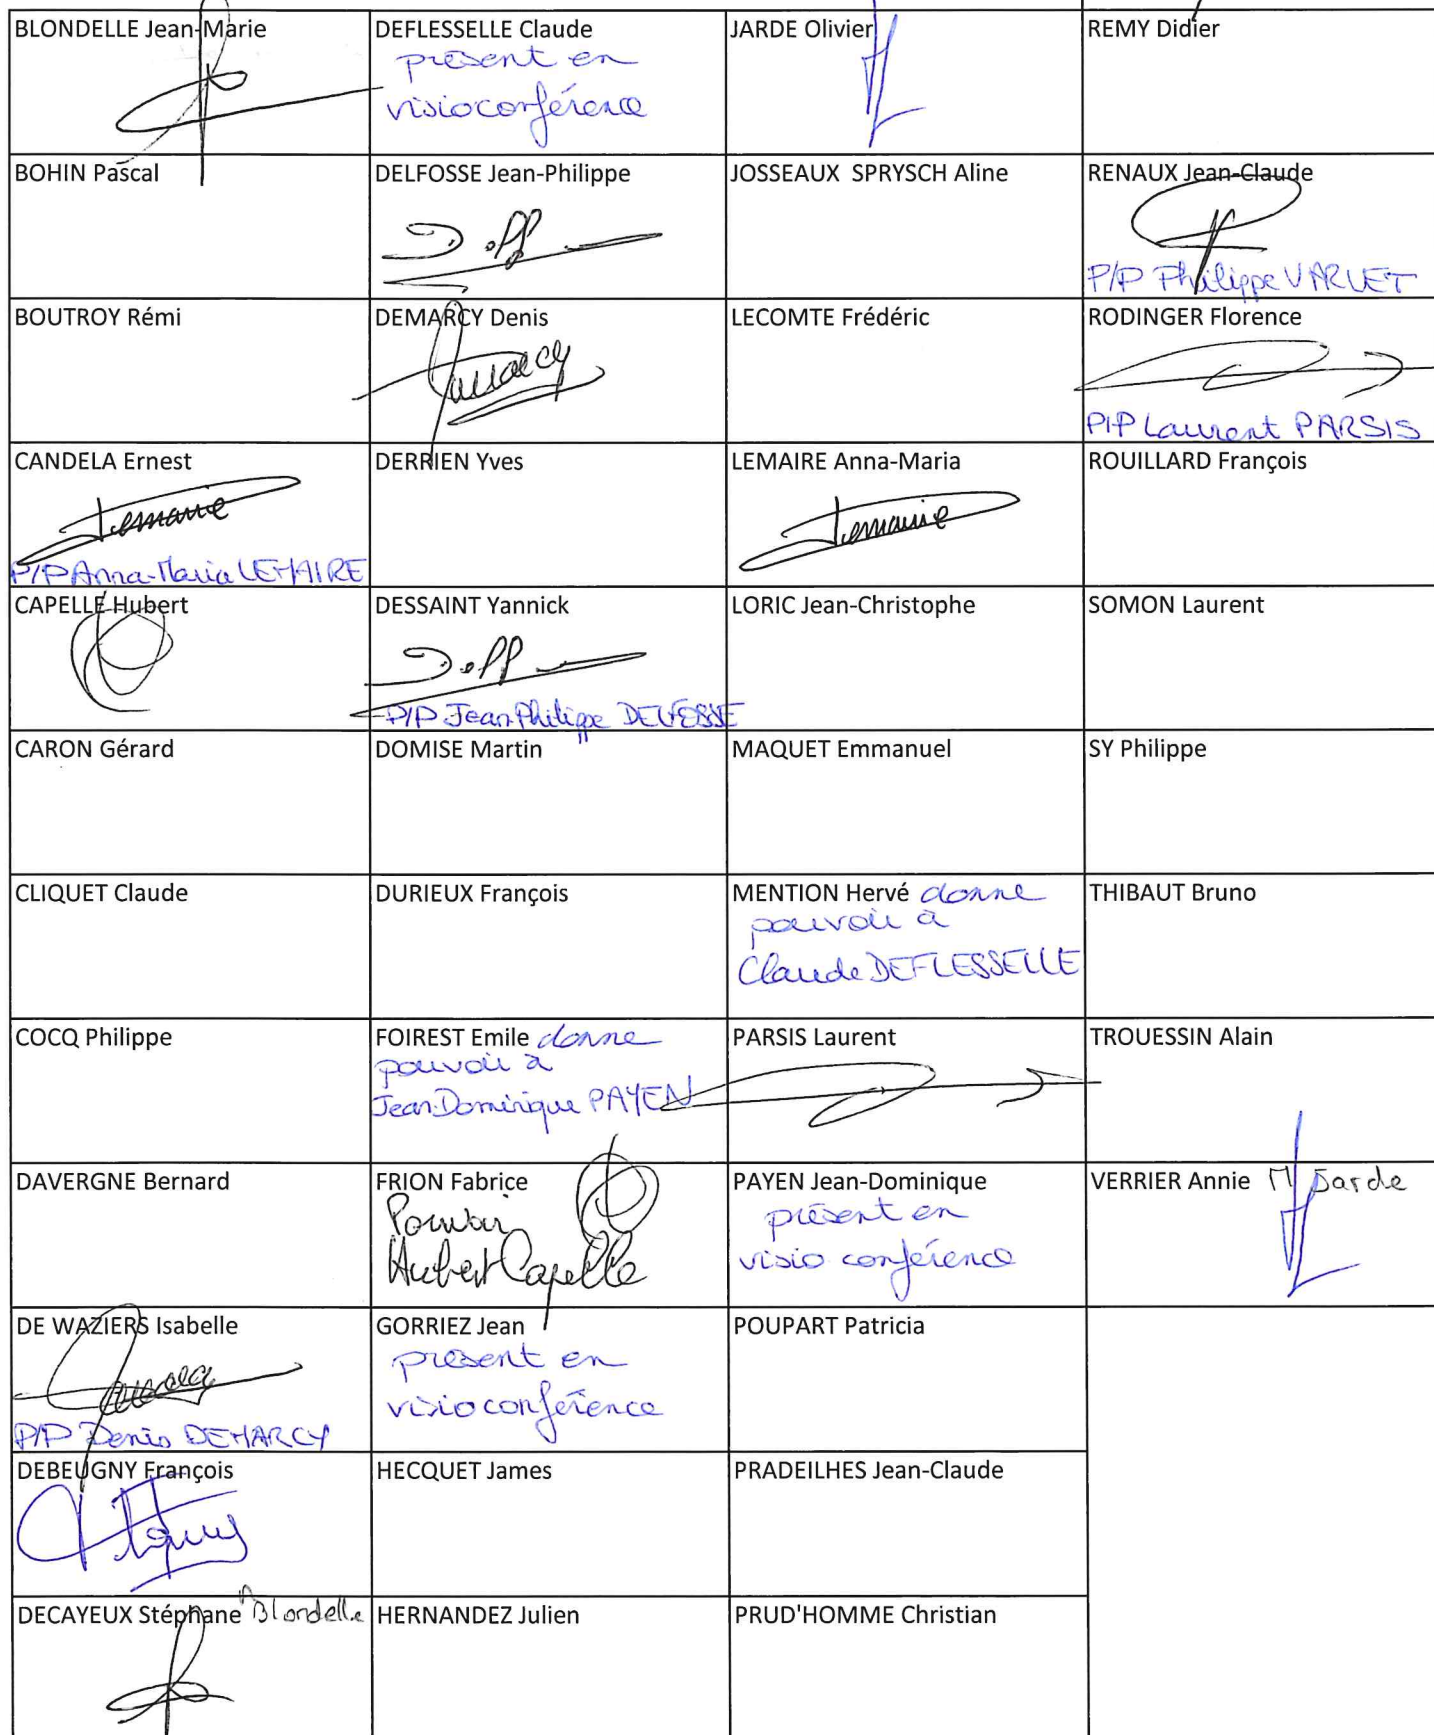 BLONDELLE Jean-Marie
DEFLESSELLE Claude
présent en
visioconférence
JARDE Olivier
REMY Didier
BOHIN Pascal
DELFOSSE Jean-Philippe
JOSSEAUX SPRYSCH Aline
RENAUX Jean-Claude
P/P Philippe VARLET
BOUTROY Rémi
DEMARCY Denis
LECOMTE Frédéric
RODINGER Florence
P/P Laurent PARSIS
CANDELA Ernest
Lemaire
P/P Anna-Maria LEMAIRE
DERRIEN Yves
LEMAIRE Anna-Maria
Lemaire
ROUILLARD François
CAPELLE Hubert
DESSAINT Yannick
P/P Jean-Philippe DELFOSSE
LORIC Jean-Christophe
SOMON Laurent
CARON Gérard
DOMISE Martin
MAQUET Emmanuel
SY Philippe
CLIQUET Claude
DURIEUX François
MENTION Hervé donne
pouvoir à
Claude DEFLESSELLE
THIBAUT Bruno
COCQ Philippe
FOIREST Emile donne
pouvoir à
Jean-Dominique PAYEN
PARSIS Laurent
TROUESSIN Alain
DAVERGNE Bernard
FRION Fabrice
Pouvoir
Hubert Capelle
PAYEN Jean-Dominique
présent en
visio conférence
VERRIER Annie M Jarde
DE WAZIERS Isabelle
P/P Denis DEMARCY
GORRIEZ Jean
présent en
visioconférence
POUPART Patricia
DEBEUGNY François
HECQUET James
PRADEILHES Jean-Claude
DECAYEUX Stéphane Blondelle
HERNANDEZ Julien
PRUD'HOMME Christian